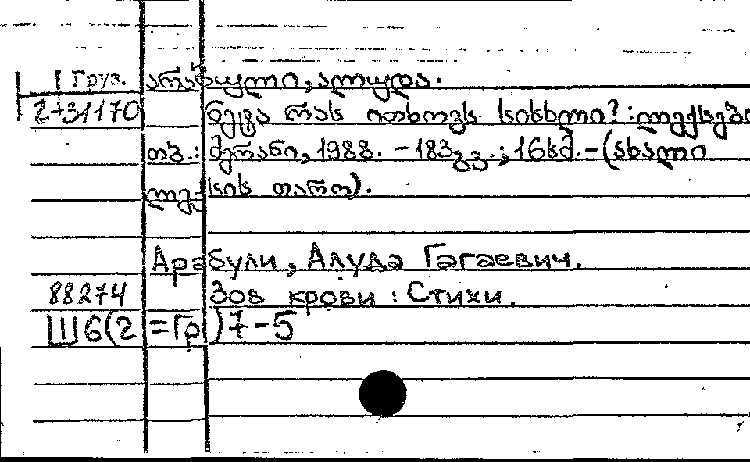 Груз. არაბული, ალუდა.
2-31170 ნეტა რას ითხოვს სისხლი? : ლექსები
თბ.: მერანი, 1988. - 183გვ.; 16სმ. - (ახალი
ლექსის თარო).
Арабули, Алуда Гагаевич.
88274 Зов крови : Стихи.
Ш6(2=Гр)7-5